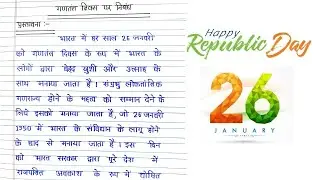 गणतंत्र दिवस पर निबंध
प्रस्तावना :
भारत में हर साल 26 जनवरी
को गणतंत्र दिवस के रूप में भारत के
लोगों द्वारा बेहद खुशी और उत्साह के
साथ मनाया जाता है। संप्रभु लोकतांत्रिक
गणराज्य होने के महत्व को सम्मान देने के
लिये इसको मनाया जाता है, जो 26 जनवरी
1950 में भारत के संविधान के लागू होने
के बाद से मनाया जाता है। इस दिन
को भारत सरकार द्वारा पूरे देश में
राजपत्रित अवकाश के रूप में घोषित
Happy
Republic Day
26
JANUARY